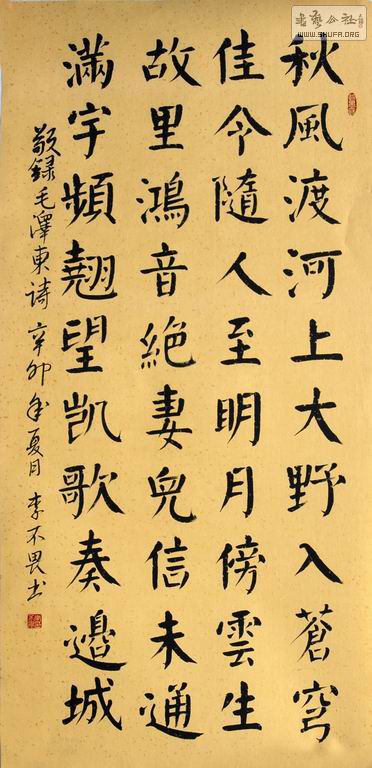 秋風渡河上大野入蒼穹
佳令隨人至明月傍雲生
故里鴻音絶妻兒信未通
滿宇頻翹望凱歌奏邊城
敬録毛澤東诗 辛卯年夏月 李不畏书
書藝公社
WWW.SHUFA.ORG